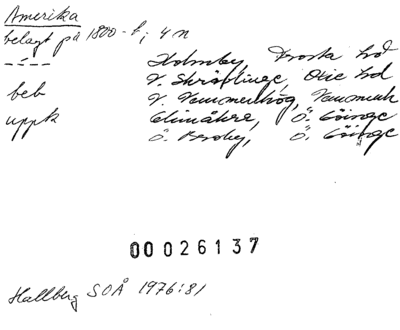 Amerika
belagt på 1800-t; 4 n
----- Holmby, Frosta hd
V. Skrävlinge, Oxie hd
beb V. Vemmenhög, Vemmenh
uppk Glimåkra, Ö. Göinge
Ö. Broby, Ö. Göinge
00026137
Hallberg SOÅ 1976:81